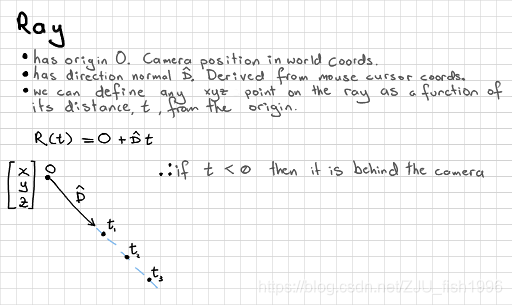 Ray
• has origin O. Camera position in world coords.
• has direction normal D̂. Derived from mouse cursor coords.
• we can define any xyz point on the ray as a function of
its distance, t, from the origin.
R(t) = O + D̂t
[x y z] O
D̂
∴ if t < 0 then it is behind the camera
t₁
t₂
t₃
https://blog.csdn.net/ZJU_fish1996